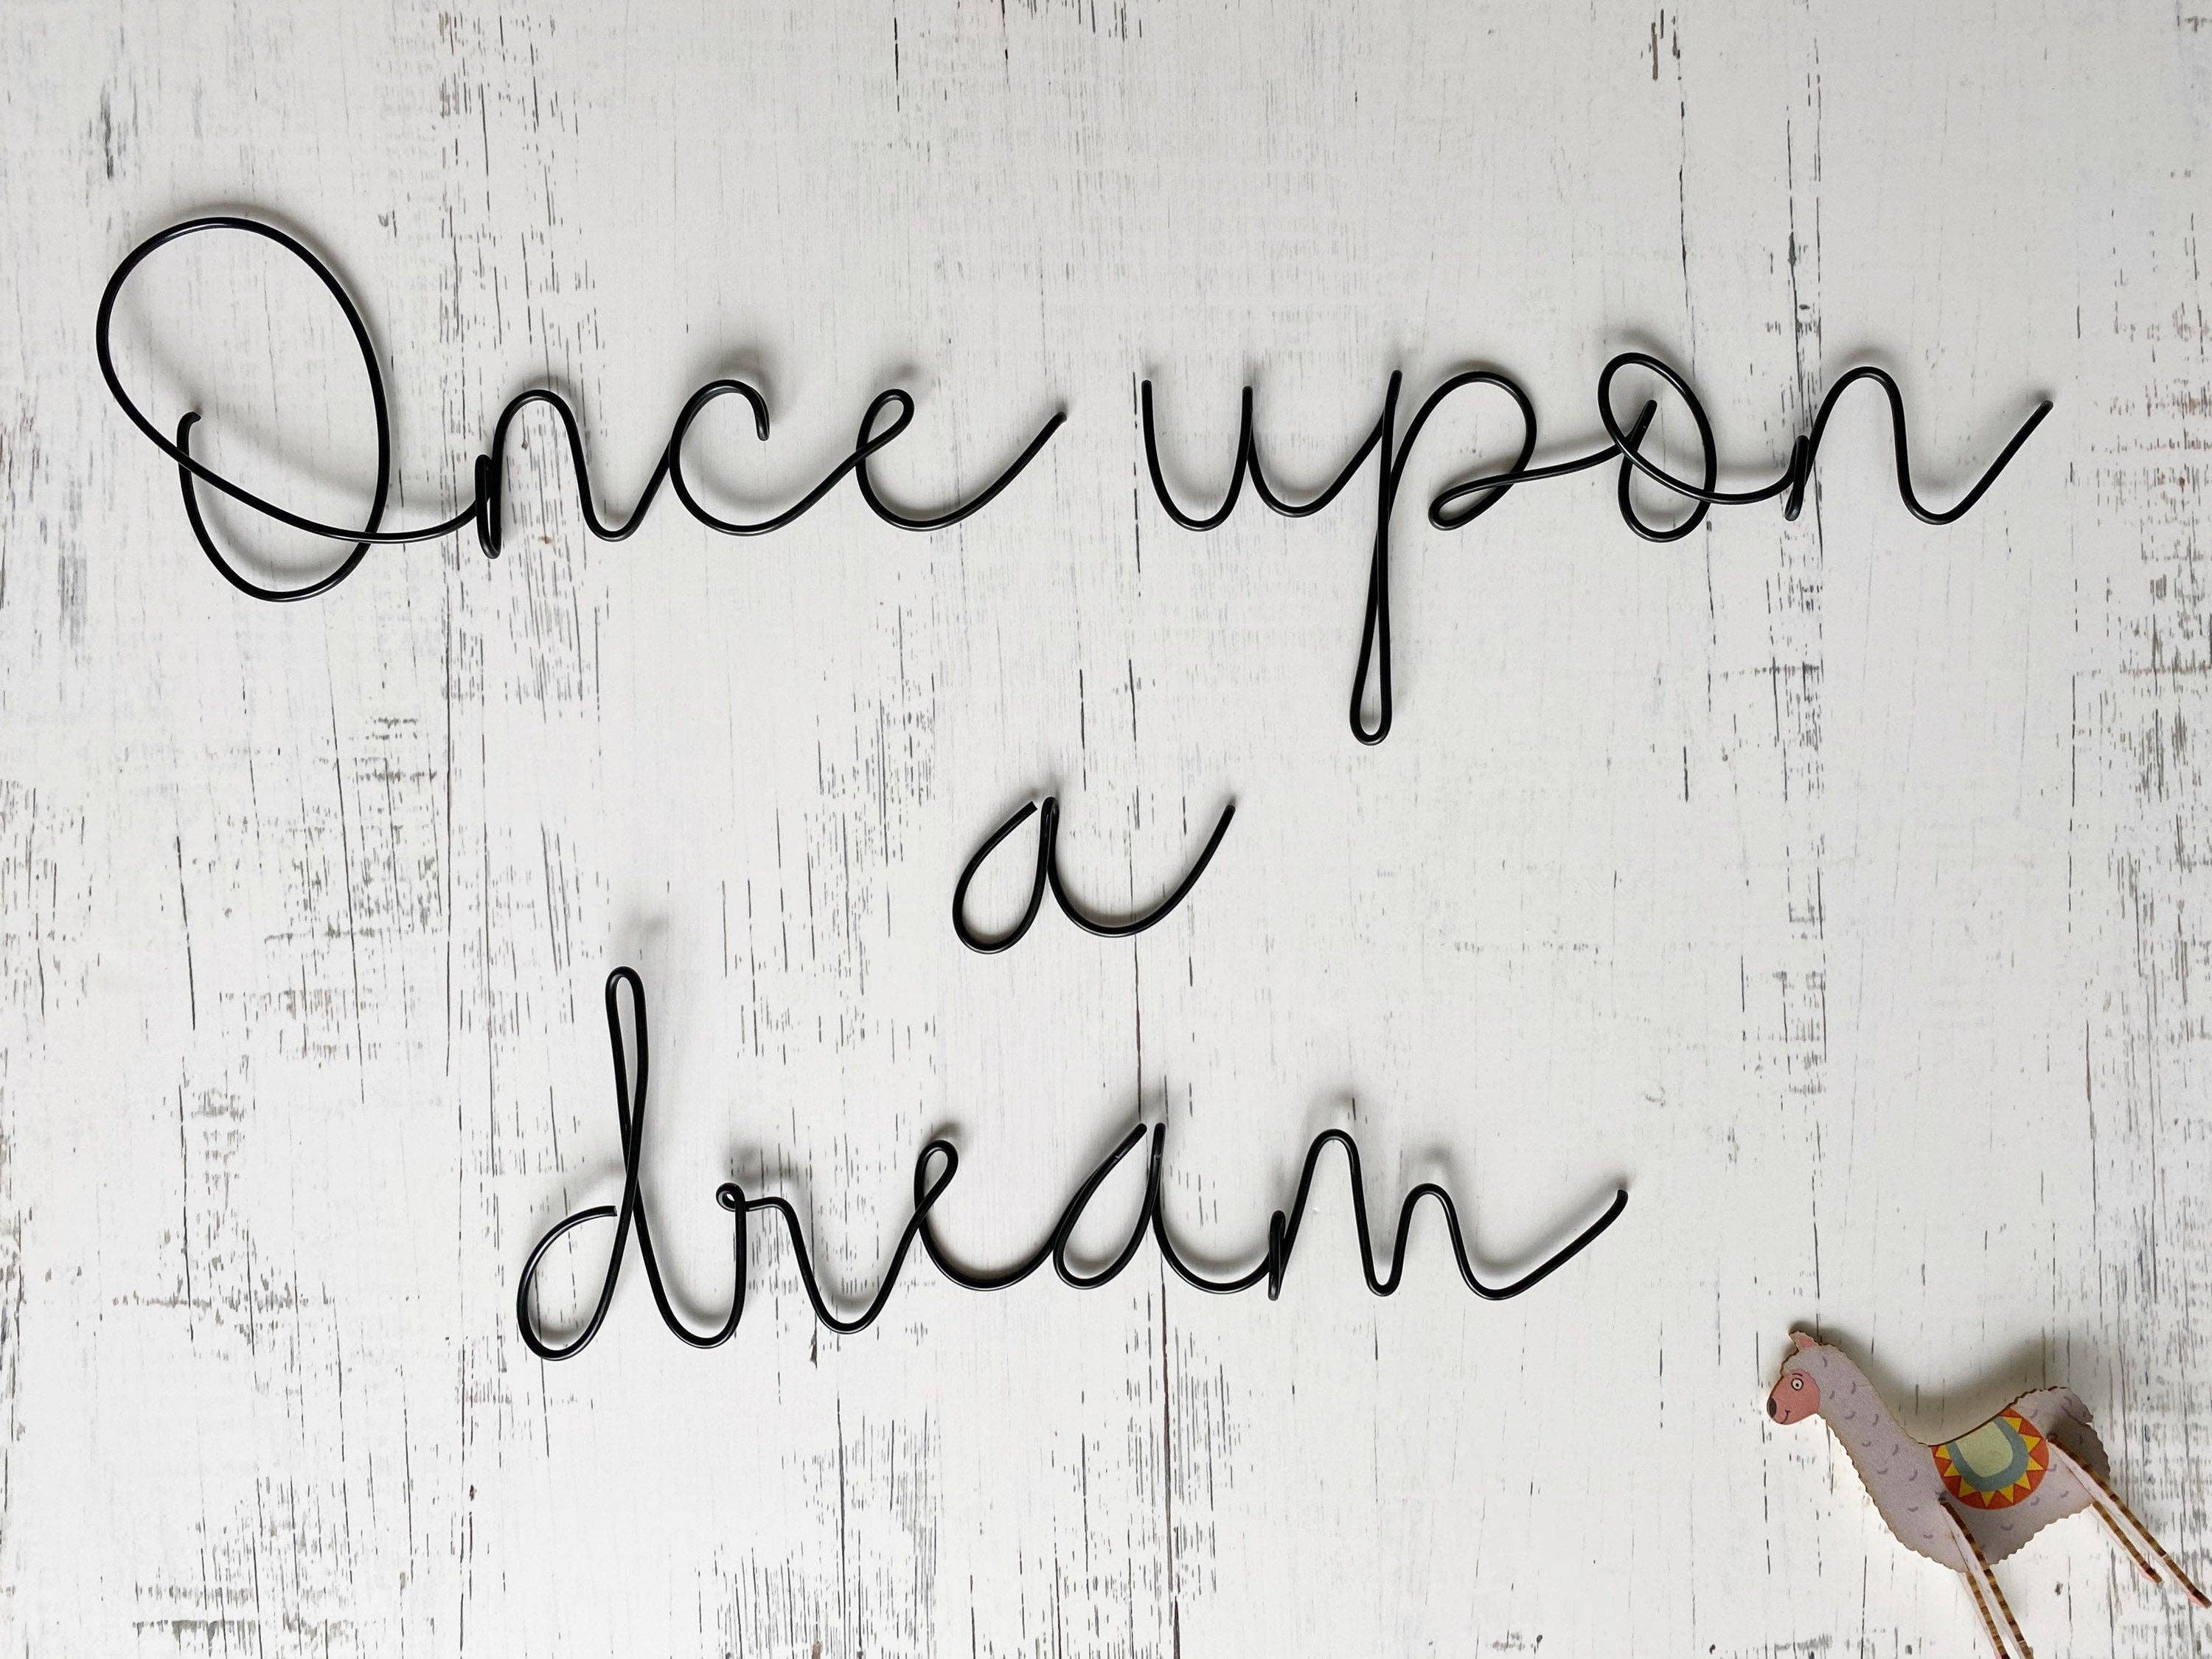 Once upon
a
dream